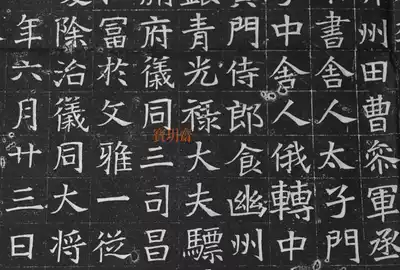 州田曹參軍丞
書舍人太子門
中舍人俄轉中
門侍郎食幽州
青光祿大夫驃
府儀同三司昌
冨於文雅一從
除治儀同大將
年六月廿三日
寶玥齋